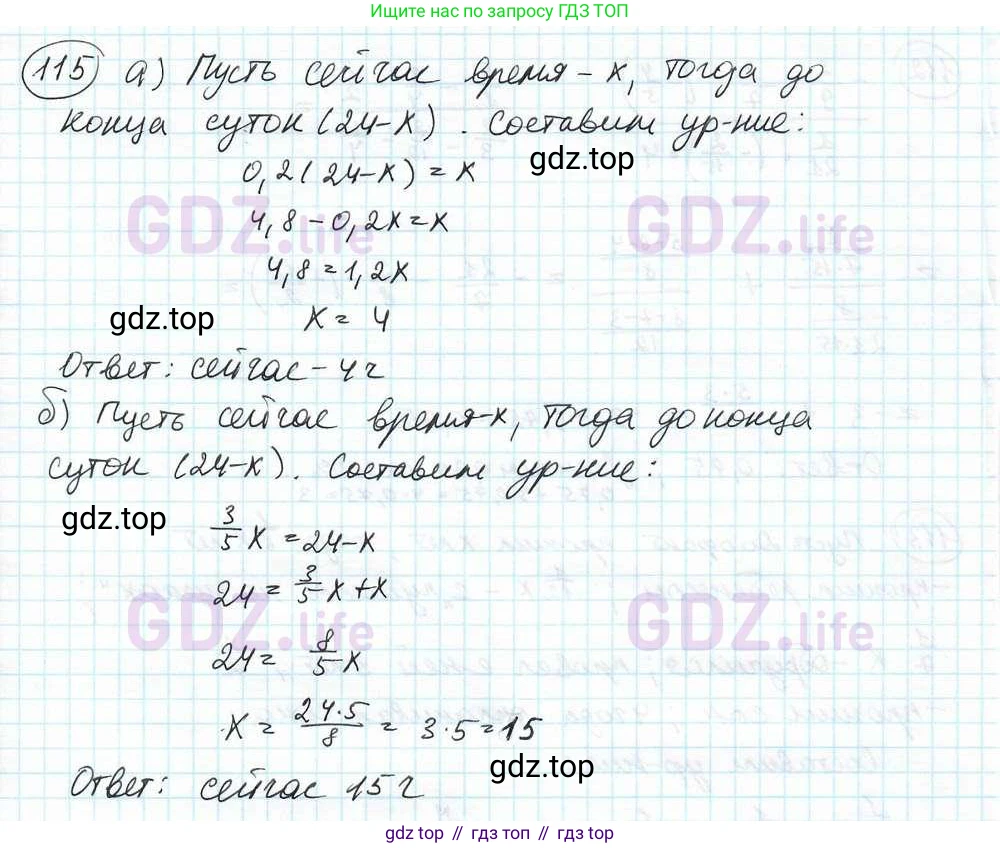 Ищите нас по запросу ГДЗ ТОП
115 а) Пусть сейчас время - x, тогда до
конца суток (24-x). Составим ур-ние:
gdz.top
0,2(24-x)=x
GDZ.life GDZ.life
4,8-0,2x=x
4,8=1,2x
gdz.top
x=4
Ответ: сейчас - 4 г
б) Пусть сейчас время-x, тогда до конца
суток (24-x). Составим ур-ние:
gdz.top
3/5 x = 24-x
24 = 3/5 x + x
GDZ.life GDZ.life
24 = 8/5 x
x = 24·5/8 = 3·5 = 15
gdz.top
Ответ: сейчас 15 г
gdz.top // гдз топ // gdz.top